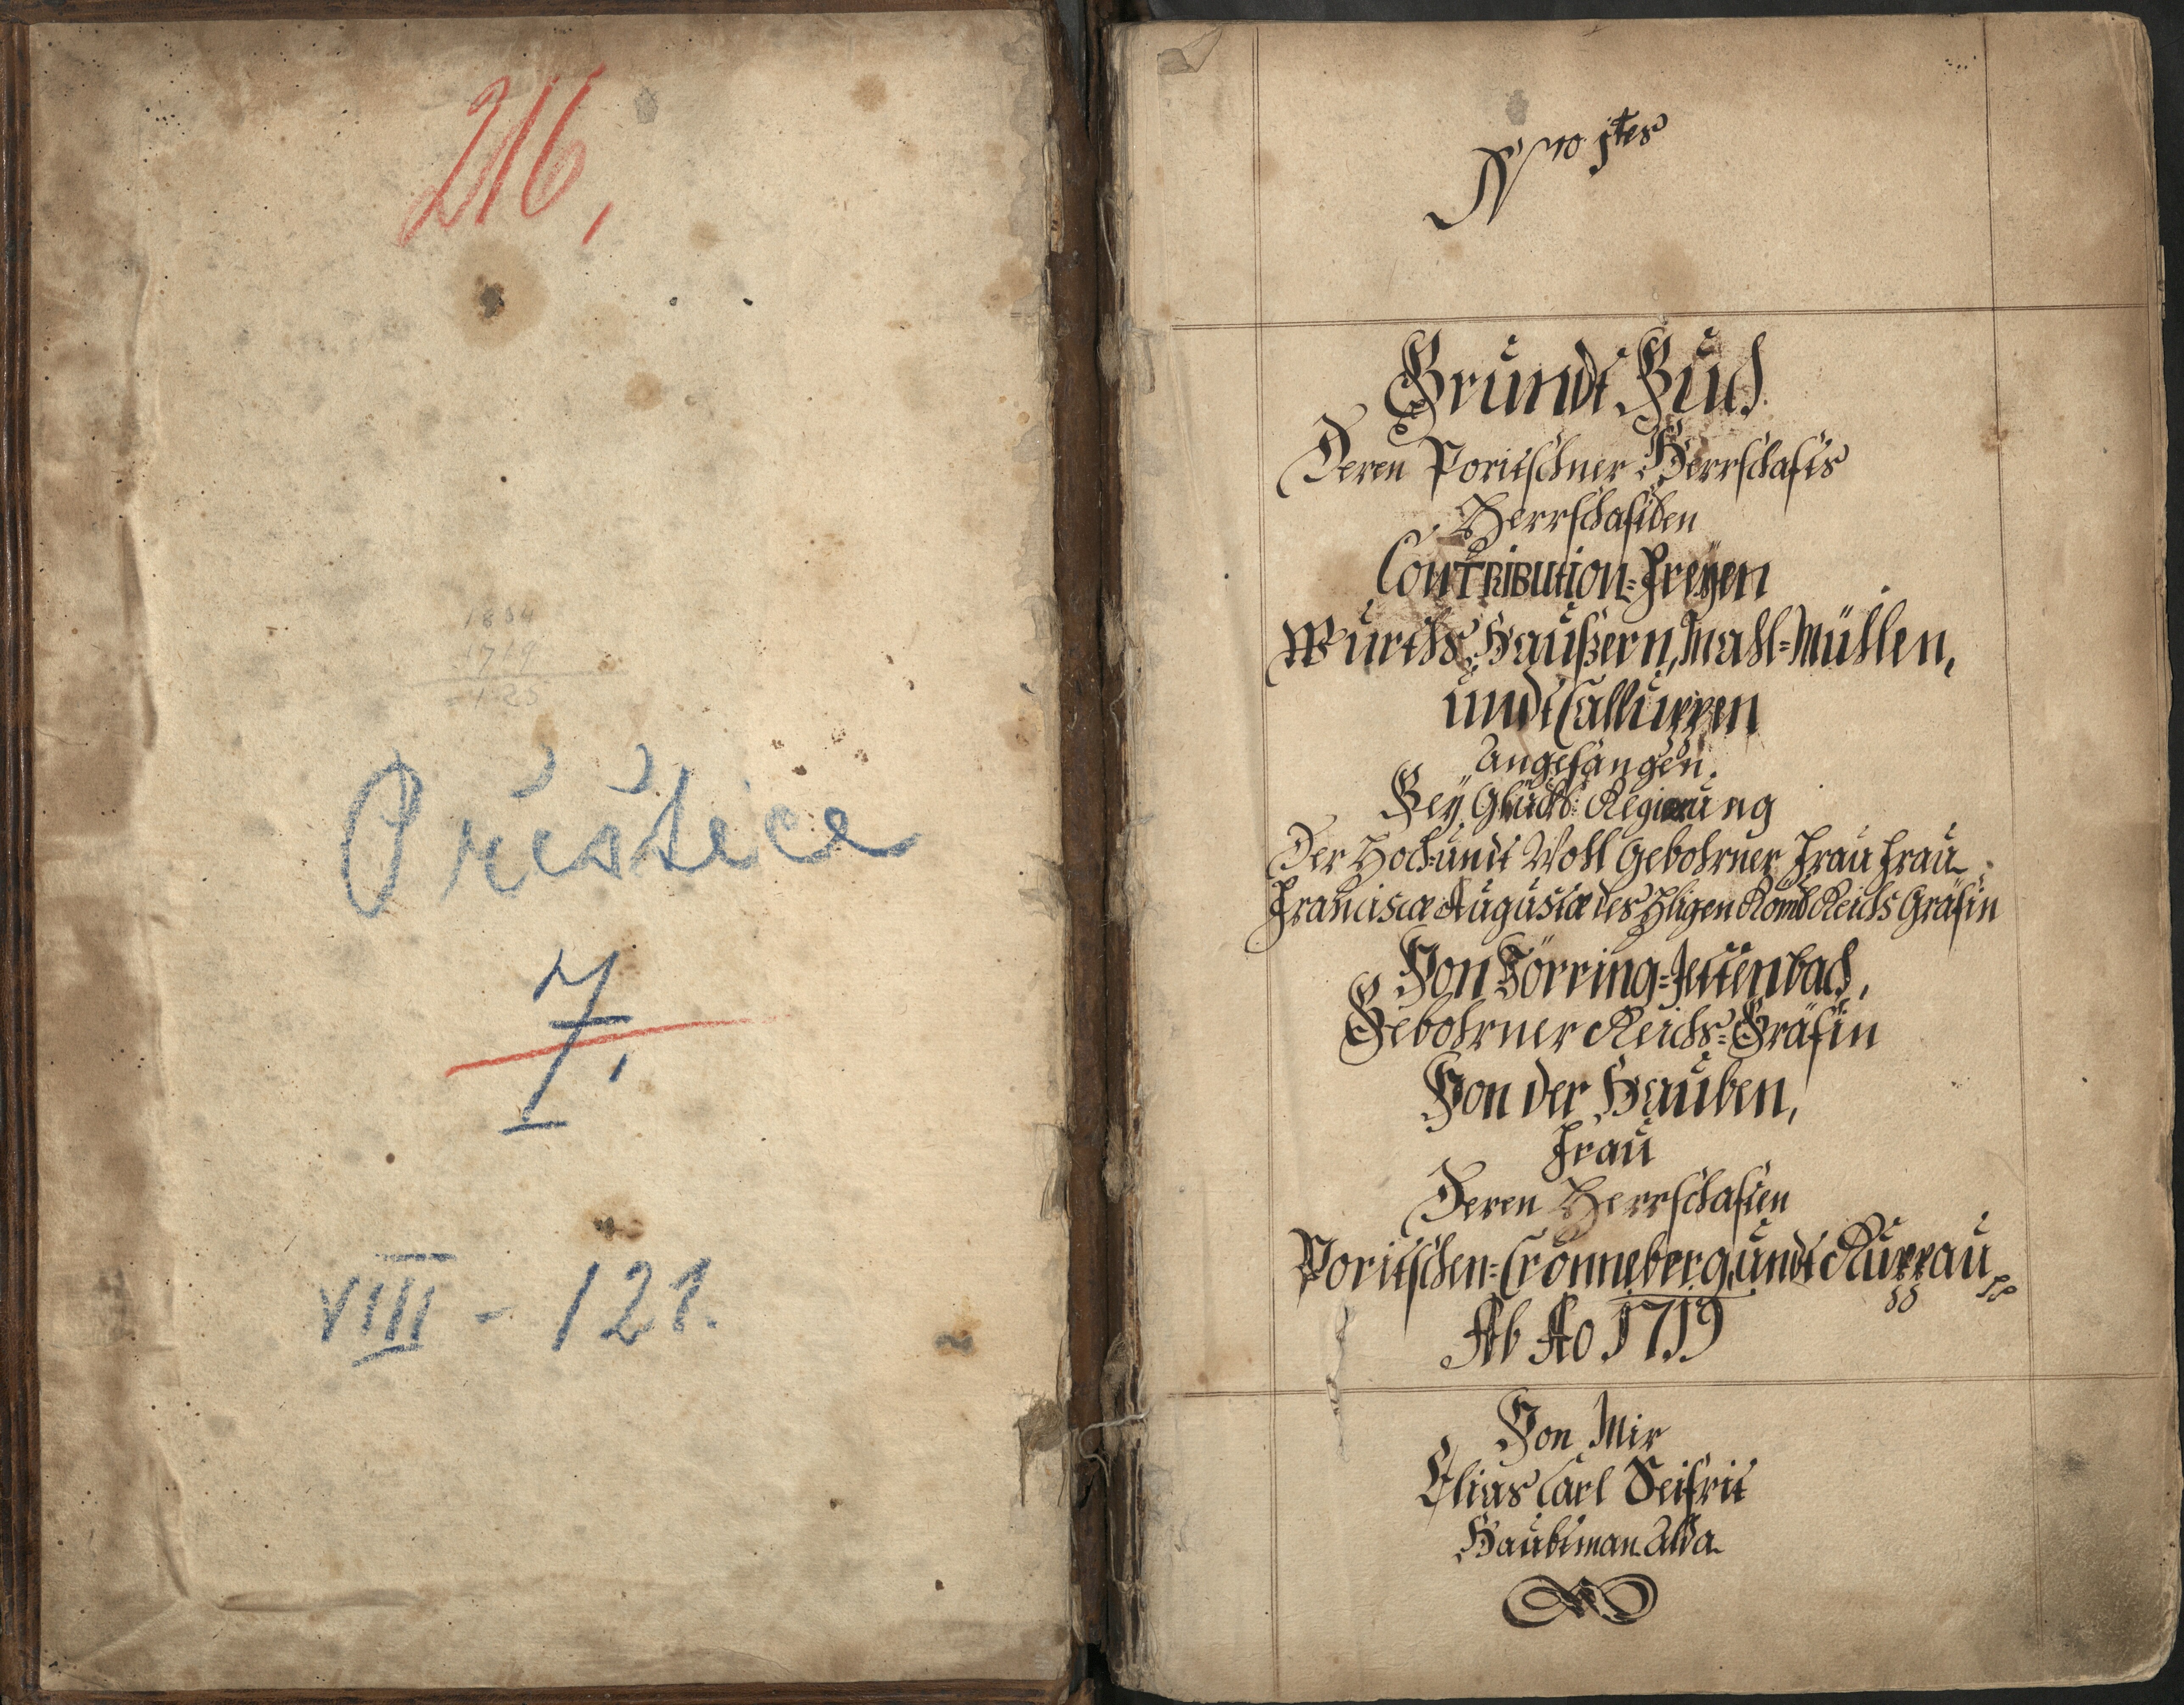 216,
1844
1719
125
Přeštice
7.
VIII - 121.
Nro 1tes
Grundt Buch
Deren Poritschner Herrschafts
Herrschaftlen
Contribution=Freyen
Würths Haußern, Mahl=Mühlen,
undt Calluppen
Angefangen.
Bey Glückl: Regierung
Der Hoch undt Wohl Gebohrner Frau Frau
Franciscæ Augustæ des Hligen Römb Reichs Gräfin
Von Törring=Jettenbach,
Gebohrner Reichs=Gräfin
Von der Hauben,
Frau
Deren Herrschaften
Poritschen=Cronneberg, undt Ruppau
Ab Ao 1719
Von Mir
Elias Carl Seifrit
Haubtman Alda